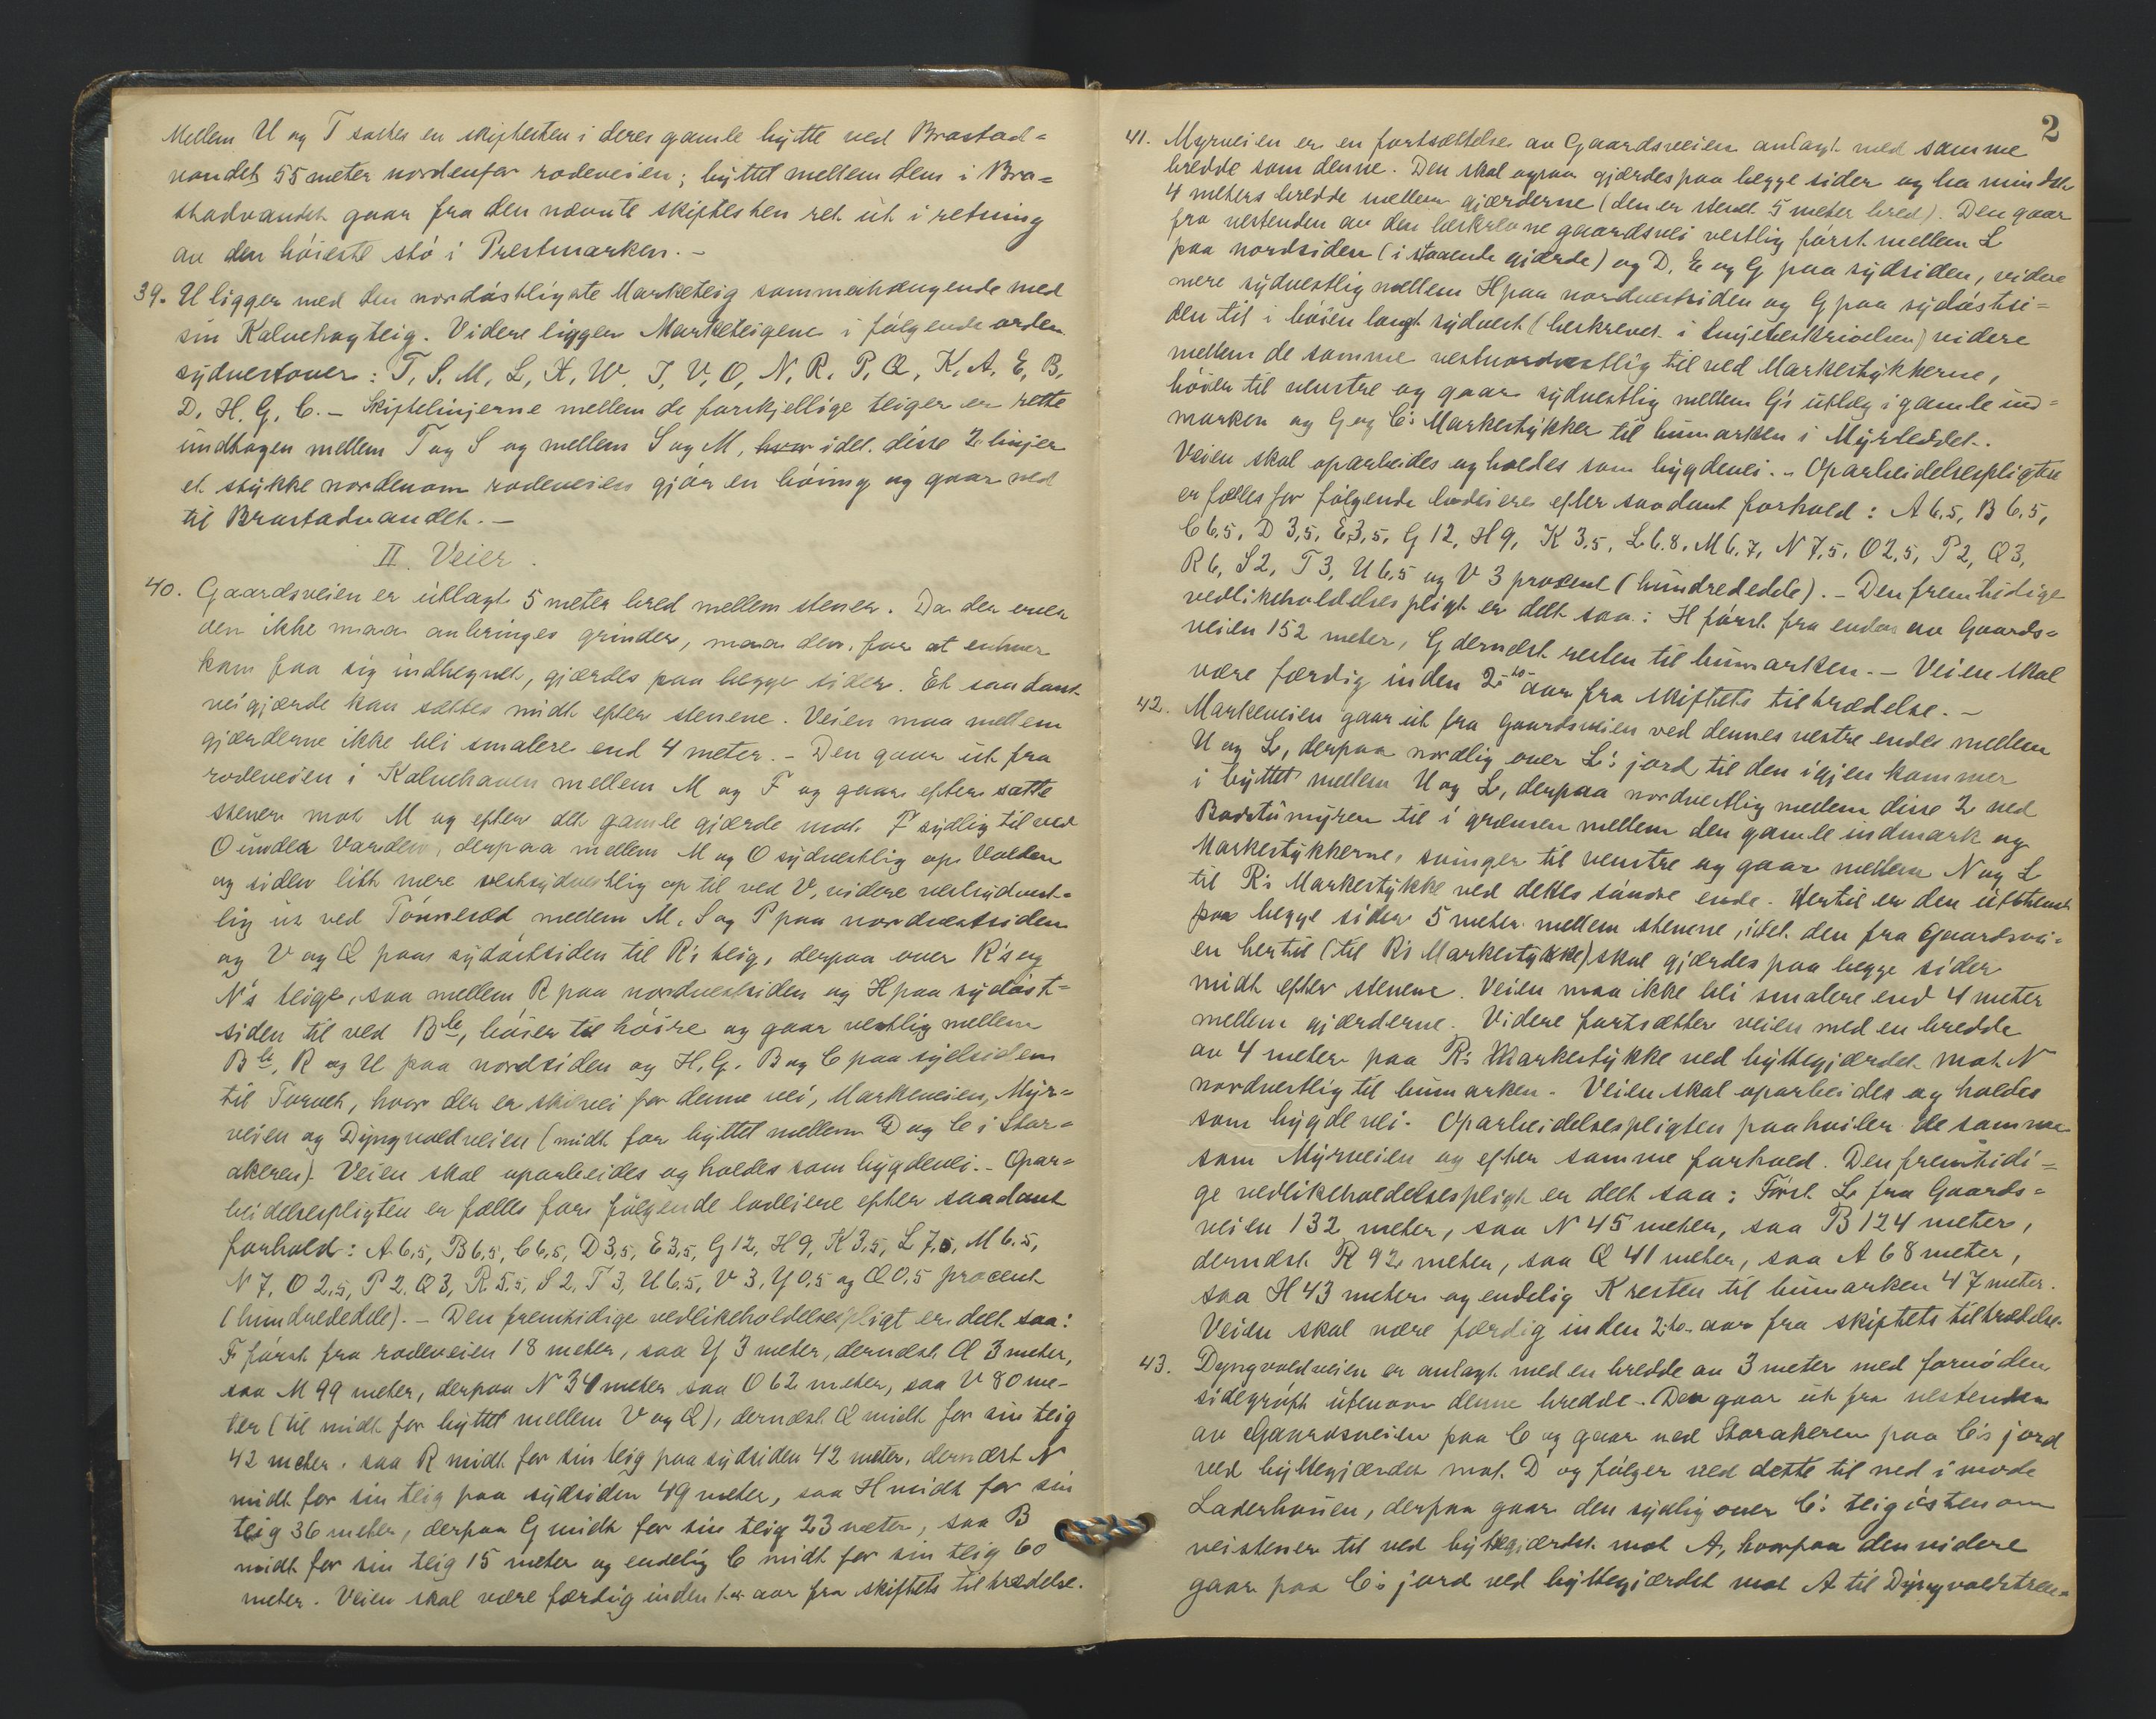 Mellem U og T sættes en skiftesten i deres gamle bytte ved Brastad=
vandet 55 meter nordenfor rodeveien; byttet mellem dem i Bra=
stadvandet gaar fra den nævnte skiftesten ret ut i retning
av den høieste stø i Prestmarken. -
39. U ligger med den nordøstligste Marketeig sammenhængende med
sin Kalvehagteig. Videre ligger Marketeigene i følgende orden
sydvestover: T, S, M, L, X, W, J, V, O, N, R, P, Q, K, A, E, B,
D, H, G, C. - Skiftelinjerne mellem de forskjellige teiger er rette
undtagen mellem T og S og mellem S og M, hvor idet disse 2 linjer
et stykke nordenom rodeveien gjør en bøining og gaar ned
til Brastadvandet. -
II. Veier.
40. Gaardsveien er utlagt 5 meter bred mellem stener. Da der over
den ikke maa anbringes grinder, maa den, for at enhver
kan faa sig indhegnet, gjærdes paa begge sider. Et saadant
veigjærde kan sættes midt efter stenene. Veien maa mellem
gjærderne ikke bli smalere end 4 meter. - Den gaar ut fra
rodeveien i Kalvehaven mellem M og F og gaar efter satte
stener mot M og efter det gamle gjærde mot F sydlig til ved
O under Varden, derpaa mellem M og O sydvestlig op Volden
og siden litt mere vestsydvestlig op til ved V, videre vestsydvest=
lig ut ved Tønnesæd mellem M, S og P paa nordvestsiden
og V og Q paa sydøstsiden til R's teig, derpaa over R's og
N's teige, saa mellem R paa nordvestsiden og H paa sydøst=
siden til ved Ble, bøier til høire og gaar vestlig mellem
Ble, R og U paa nordsiden og H, G, B og C paa sydsiden
til Torvet, hvor der er skilvei for denne vei, Markeveien, Myr=
veien og Dyngvoldveien (midt for byttet mellem D og C i Stor=
akeren). Veien skal oparbeides og holdes som bygdevei. - Opar=
beidelsespligten er fælles for følgende lodeiere efter saadant
forhold: A 6,5, B 6,5, C 6,5, D 3,5, E 3,5, G 12, H 9, K 3,5, L 7,5, M 6,5,
N 7, O 2,5, P 2, Q 3, R 5,5, S 2, T 3, U 6,5, V 3, Y 0,5 og Æ 0,5 procent
(hundrededele). - Den fremtidige vedlikeholdelsespligt er delt saa:
F først fra rodeveien 18 meter, saa Y 3 meter, dernæst Æ 3 meter,
saa M 99 meter, derpaa N 34 meter saa O 62 meter, saa V 80 me-
ter (til midt for byttet mellem V og Q), dernæst Q midt for sin teig
42 meter, saa R midt for sin teig paa sydsiden 42 meter, dernæst N
midt for sin teig paa sydsiden 49 meter, saa H midt for sin
teig 36 meter, derpaa G midt for sin teig 23 meter, saa B
midt for sin teig 15 meter og endelig C midt for sin teig 60
meter. Veien skal være færdig inden 1 aar fra skiftets tiltrædelse.
2
41. Myrveien er en fortsættelse av Gaardsveien anlagt med samme
bredde som denne. Den skal ogsaa gjærdes paa begge sider og ha mindst
4 meters bredde mellem gjærderne (den er stenet 5 meter bred). Den gaar
fra vestenden av den beskrevne gaardsvei vestlig først mellem L
paa nordsiden (i staaende gjærde) og D, E og G paa sydsiden, videre
mere sydvestlig mellem H paa nordvestsiden og G paa sydøstsi=
den til i bøien langt sydvest (beskrevet i linjebeskrivelsen) videre
mellem de samme vestnordvestlig til ved Markestykkerne,
bøier til venstre og gaar sydvestlig mellem G's utlæg i gamle ind=
marken og G og C's Markestykker til bumarken i Myrleddet.
Veien skal oparbeides og holdes som bygdevei. - Oparbeidelsespligten
er fælles for følgende lodeiere efter saadant forhold: A 6,5, B 6,5,
C 6,5, D 3,5, E 3,5, G 12, H 9, K 3,5, L 6,8, M 6,7, N 7,5, O 2,5, P 2, Q 3,
R 6, S 2, T 3, U 6,5 og V 3 procent (hundrededele). - Den fremtidige
vedlikeholdelsespligt er delt saa: H først fra enden av Gaards=
veien 152 meter, G dernæst resten til bumarken. - Veien skal
være færdig inden 2-to- aar fra skiftets tiltrædelse. -
42. Markeveien gaar ut fra Gaardsveien ved dennes vestre ende mellem
U og L, derpaa nordlig over L's jord til den igjen kommer
i byttet mellem U og L, derpaa nordvestlig mellem disse 2 ved
Badstumyren til i grænsen mellem den gamle indmark og
Markestykkerne, svinger til venstre og gaar mellem N og L
til R's Markestykke ved dettes søndre ende. Hertil er den utstenet
paa begge sider 5 meter mellem stenene, idet den fra Gaardsvei=
en hertil (til R's Markestykke) skal gjærdes paa begge sider
midt efter stenene. Veien maa ikke bli smalere end 4 meter
mellem gjærderne. Videre fortsætter veien med en bredde
av 4 meter paa R's Markestykke ved byttegjærdet mot N
nordvestlig til bumarken. Veien skal oparbeides og holdes
som bygdevei. Oparbeidelsespligten paahviler de samme
som Myrveien og efter samme forhold. Den fremtidi=
ge vedlikeholdelsespligt er delt saa: Først L fra Gaards=
veien 132 meter, saa N 45 meter, saa B 124 meter,
dernæst R 92 meter, saa Q 41 meter, saa A 68 meter,
saa H 43 meter og endelig K resten til bumarken 47 meter.
Veien skal være færdig inden 2-to- aar fra skiftets tiltrædelse.
43. Dyngvoldveien er anlagt med en bredde av 3 meter med fornøden
sidegrøft utenom denne bredde. Den gaar ut fra vestenden
av Gaardsveien paa C og gaar ned Storakeren paa C's jord
ved byttegjærdet mot D og følger ved dette til ned i mode
Laderhauen, derpaa gaar den sydlig over C's teig østenom
veistener til ved byttegjærdet mot A, hvorpaa den videre
gaar paa C's jord ved byttegjærdet mot A til Dyngvoldstran=